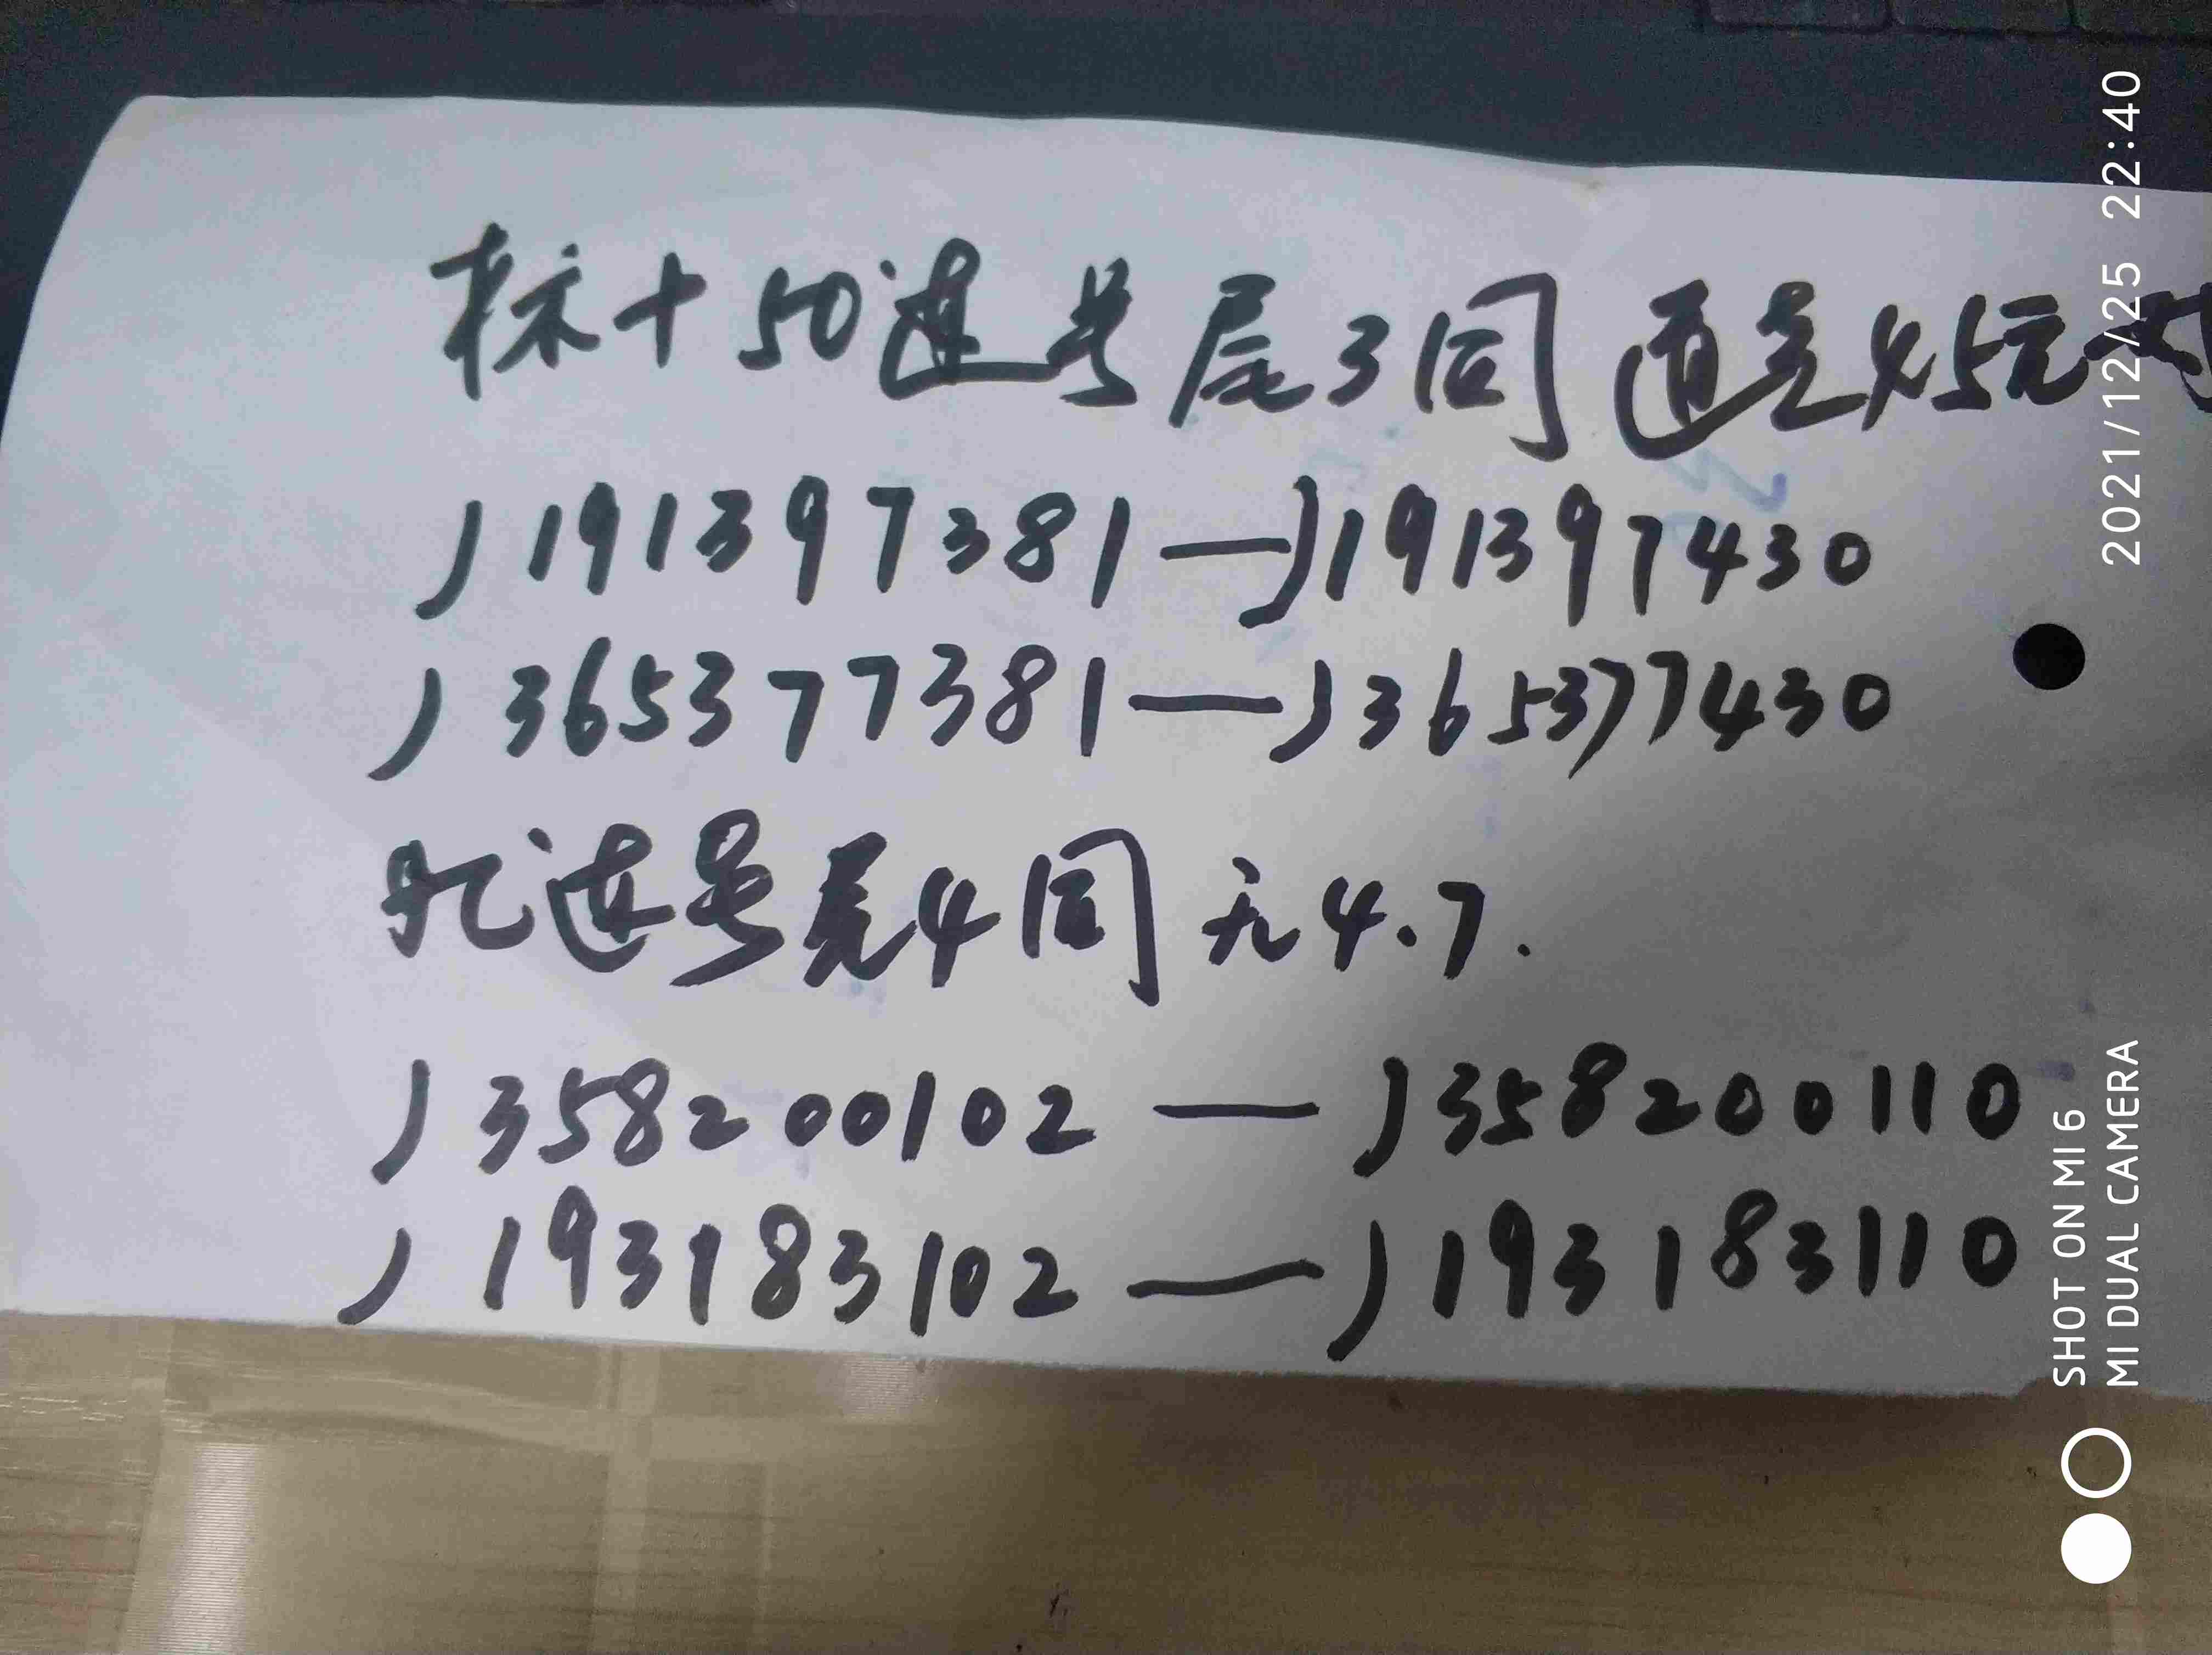 标十50连号尾3同通走45元对
J191397381—J191397430
J365377381—J365377430
九连号尾4同无4.7.
J358200102—J358200110
J193183102—J193183110
2021/12/25 22:40
SHOT ON MI 6
MI DUAL CAMERA